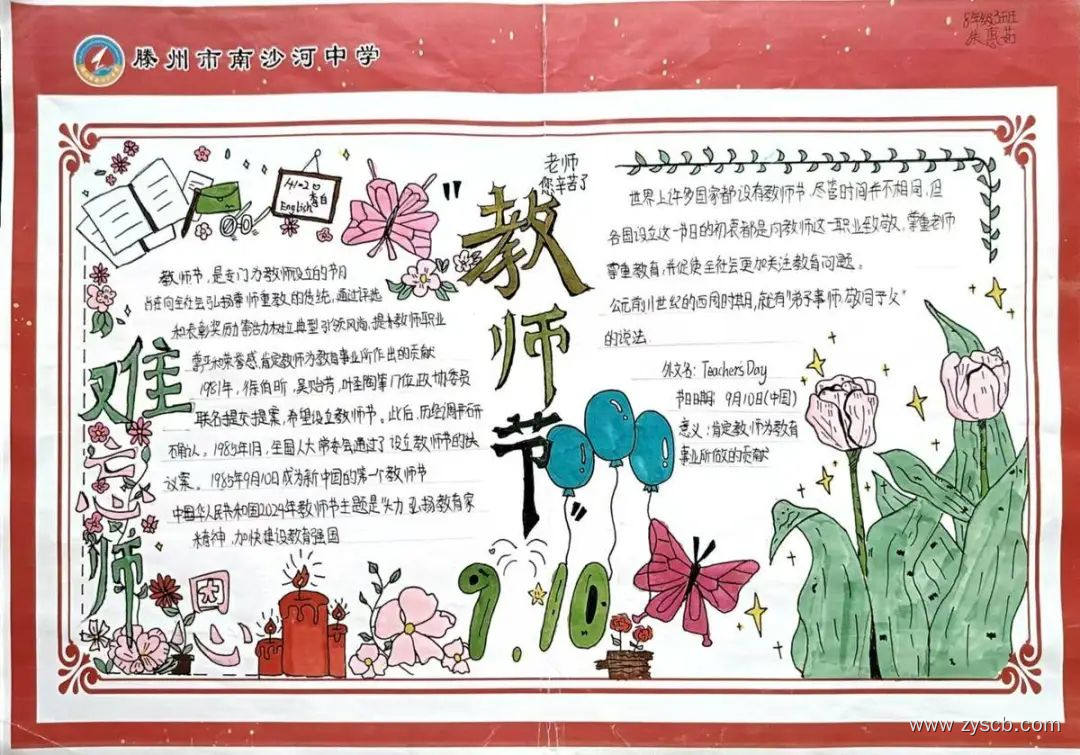 滕州市南沙河中学
8年级3班
朱惠茹
老师
您辛苦了
1+1=2
李白
English
"教师节"
难忘师恩
教师节，是专门为教师设立的节日
旨在向全社会弘扬尊师重教的传统，通过评选
和表彰奖励 典型引领风尚，提升教师职业
尊严和荣誉感，肯定教师为教育事业所作出的贡献
1981年，徐伯昕，吴贻芳，叶圣陶等 位政协委员
联名提交提案，希望设立教师节。此后，历经 调研
确认。1985年1月，全国人大常委会通过了设立教师节的决
议案。1985年9月10日成为新中国的第一个教师节
中华人民共和国2024年教师节主题是"大力弘扬教育家
精神，加快建设教育强国
世界上许多国家都设有教师节，尽管时间并不相同，但
各国设立这一节日的初衷都是向教师这一职业致敬，尊重老师
尊重教育，并促使全社会更加关注教育问题。
公元前11世纪的西周时期，就有"弟子事师，敬同于父"
的说法.
外文名：Teacher's Day
节日日期：9月10日(中国)
意义：肯定教师为教育
事业所做的贡献
9.10
www.zyscb.com